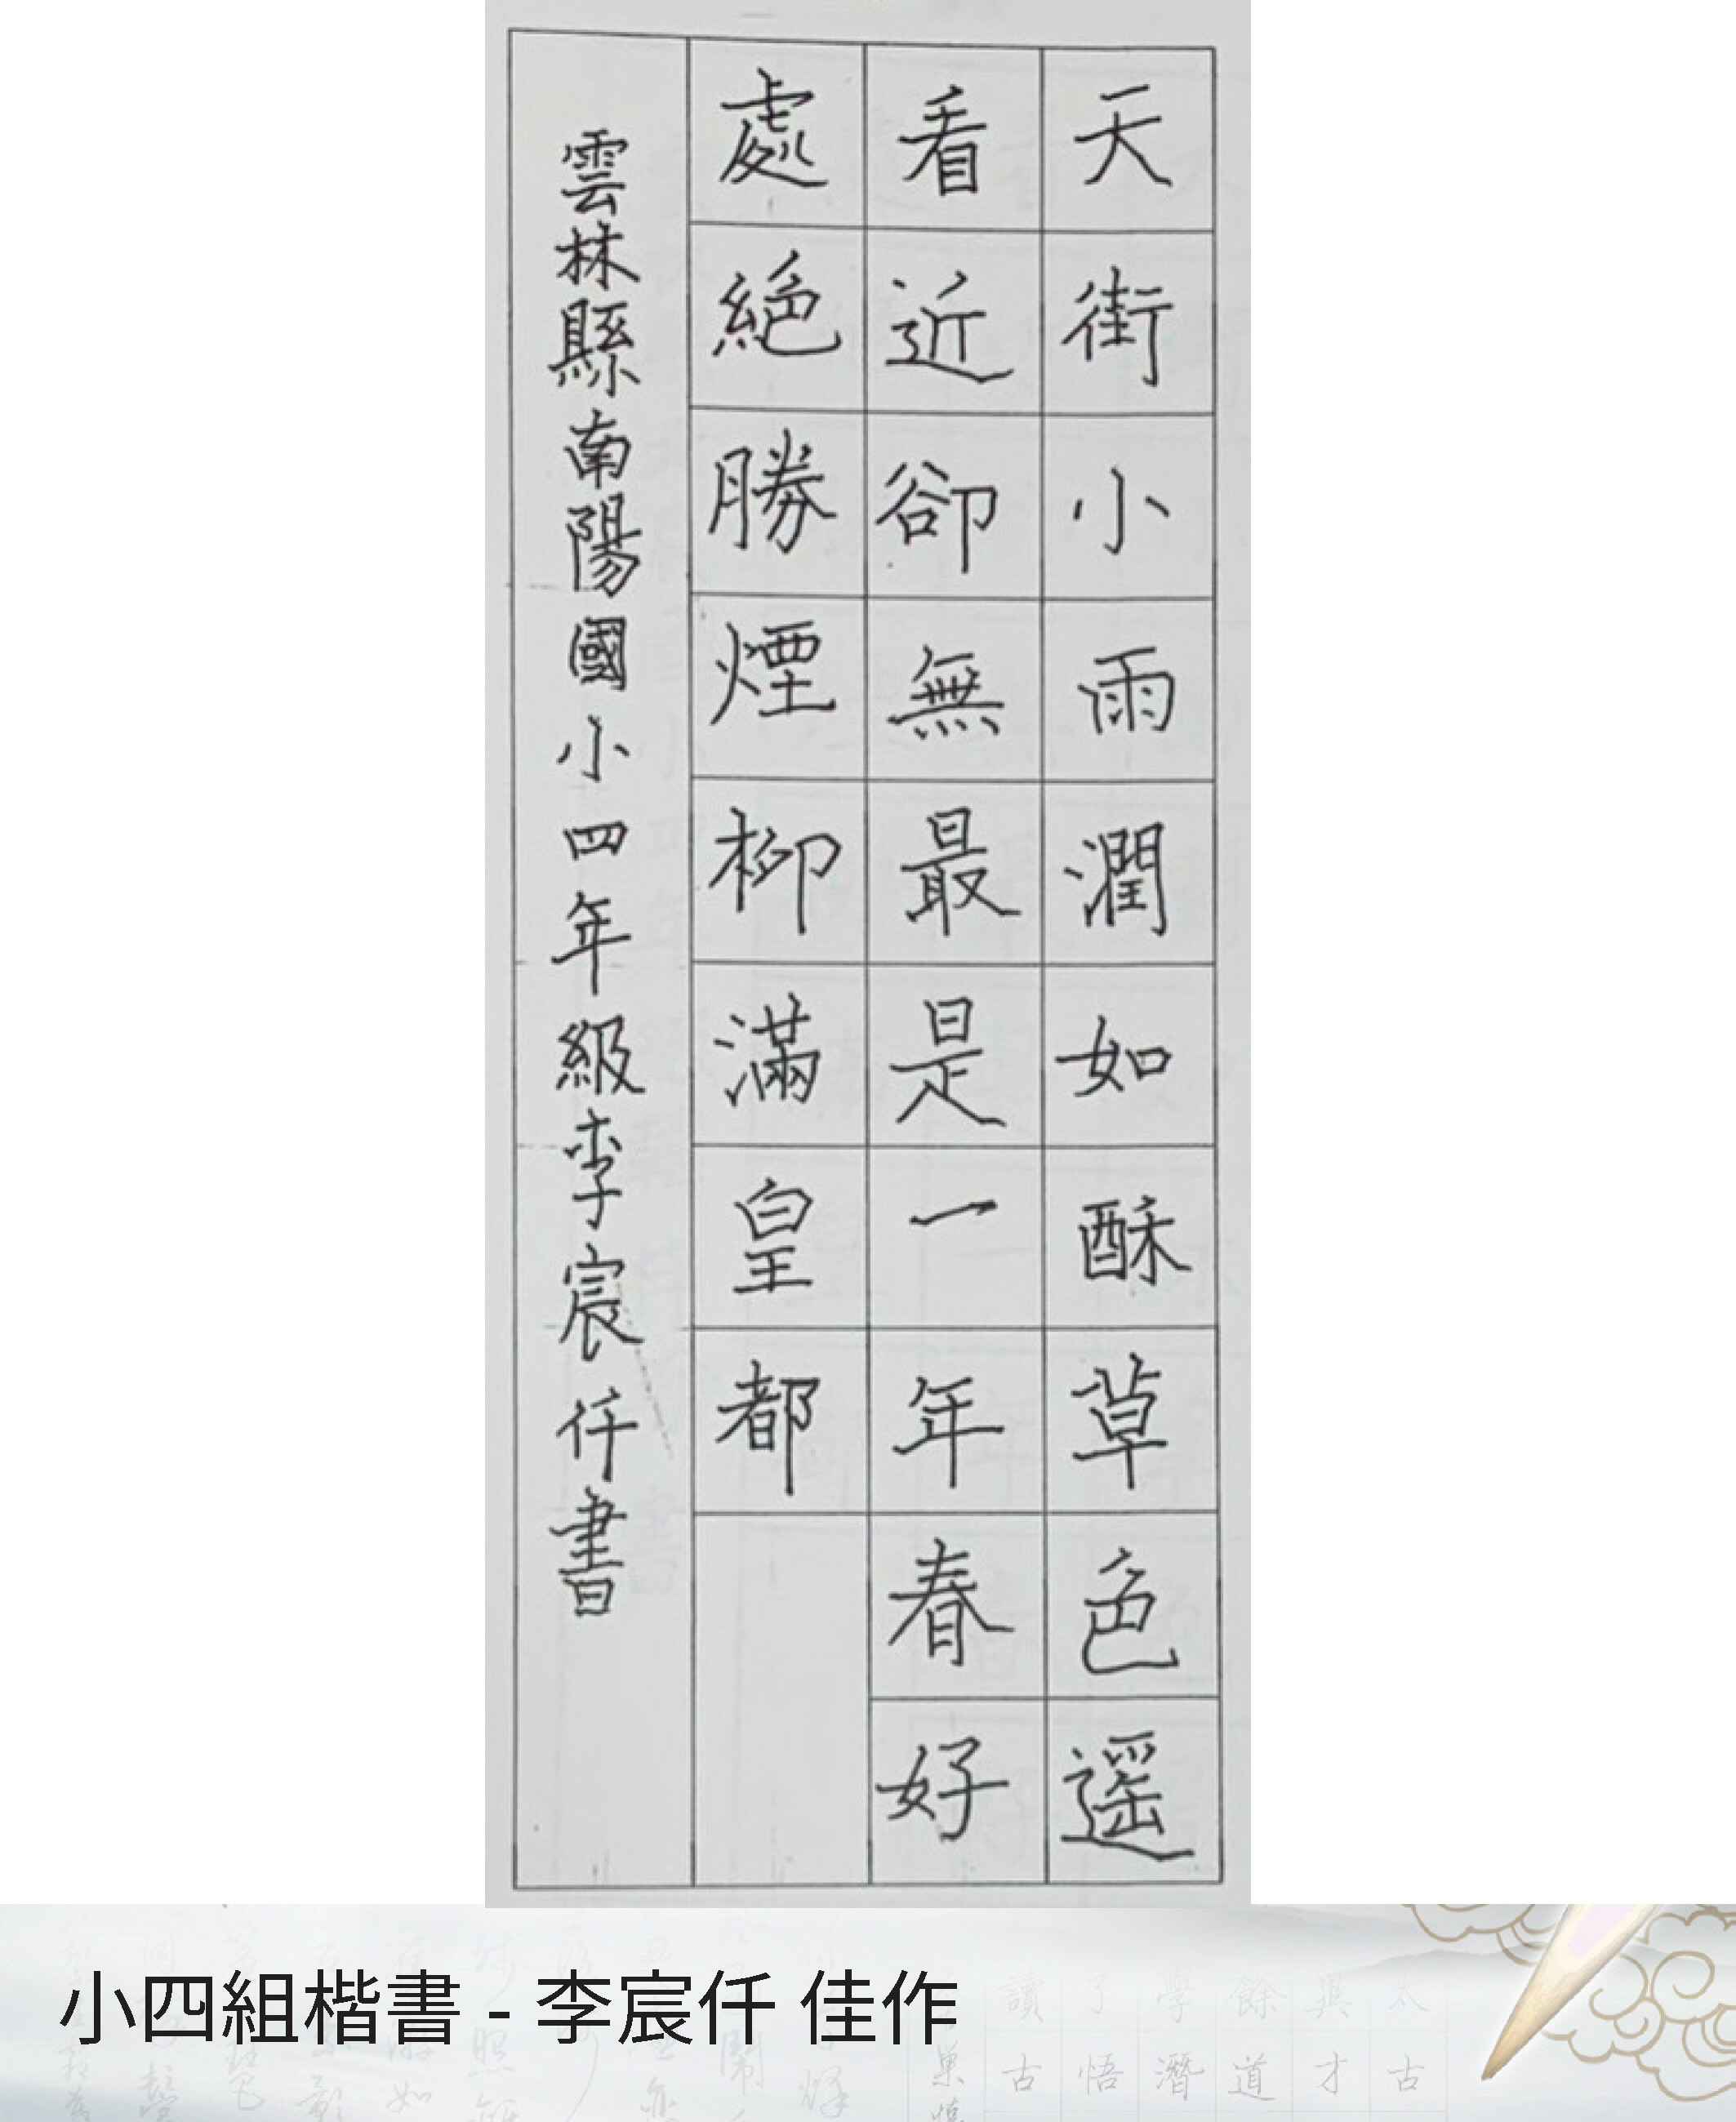 天街小雨潤如酥草色遥
看近卻無最是一年春好
處絕勝煙柳滿皇都
雲林縣南陽國小四年級李宸仟書
小四組楷書 - 李宸仟 佳作